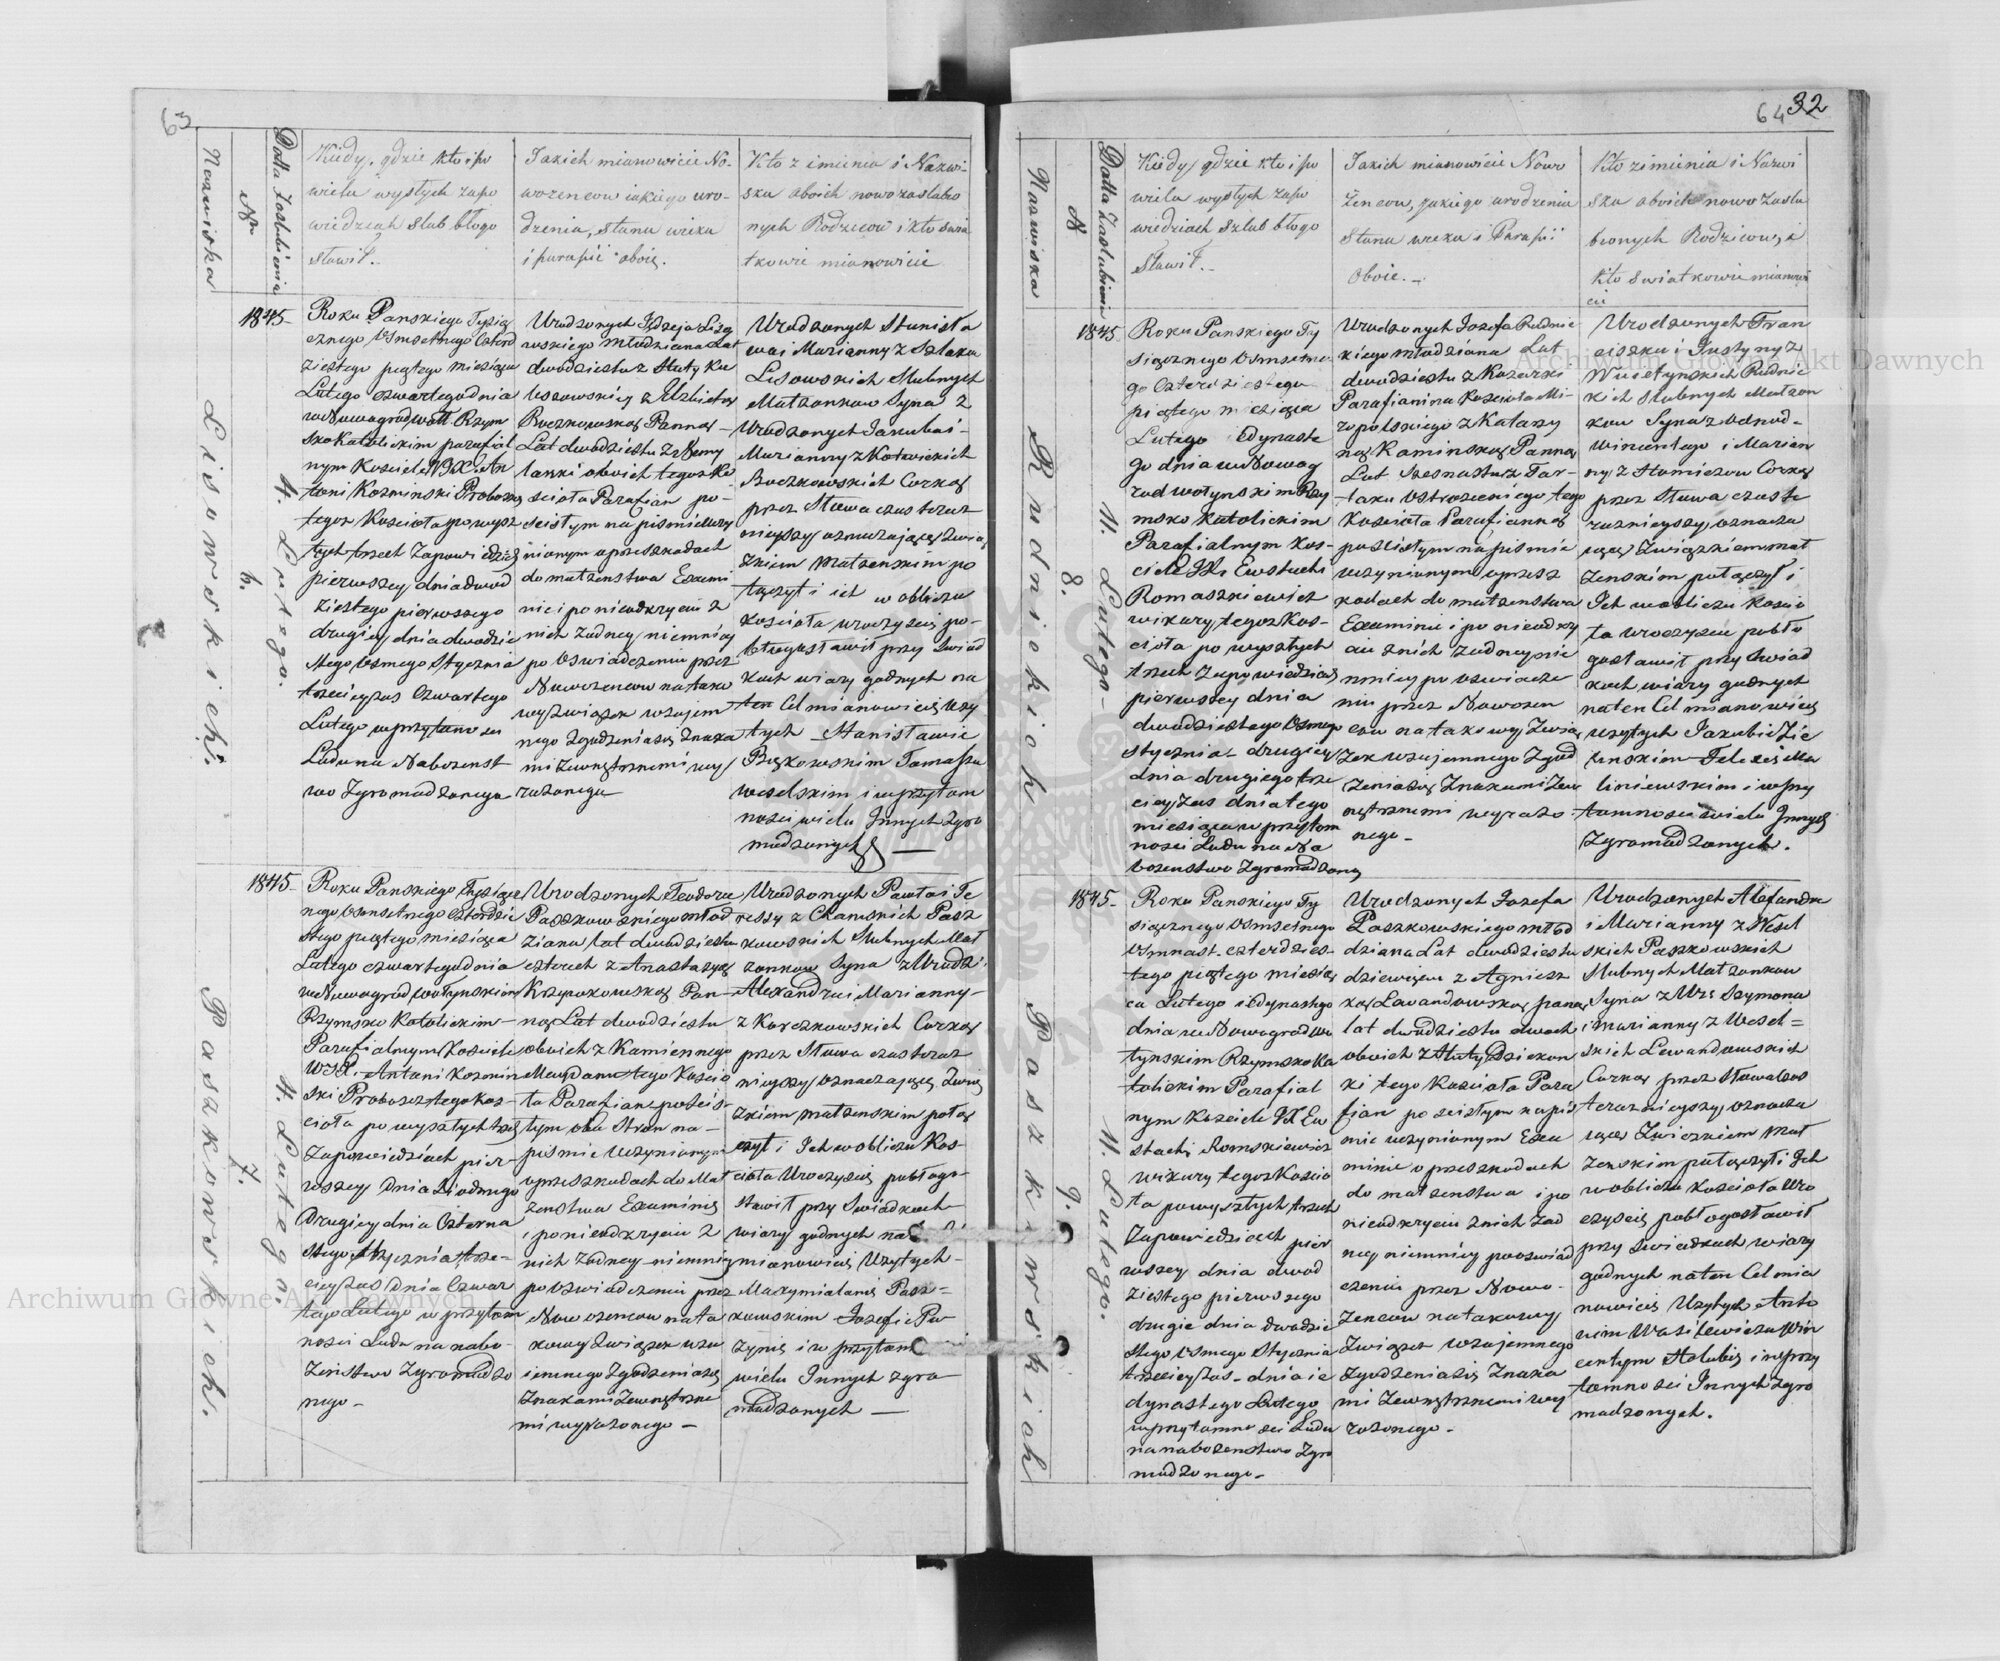 63
Nazwiska
N
Datta Zaslubienia
Kiedy, gdzie kto i po
wielu wyszłych zapo
wiedziach slub błogo
sławił.
Jakich mianowicie No-
wozencow iakiego uro-
dzenia, stanu wieku
i parafii oboie.
Kto z imienia i Nazwi-
ska oboich nowo zaslubio
nych Rodzicow i kto swia
tkowie mianowicie
Lisowskich.
6.
4. Lutego.
1845
Roku Panskiego Tysią
cznego Osmsetnego Czterd
ziestego piątego miesiąca
Lutego czwartego dnia
w Nowogradwołł. Rzym
sko Katolickim parafial
nym Kosciele W JX. An
toni Kozminski Proboszcz
tegoz Kosciola po wysz
łych trzech Zapowiedziach
pierwszey dnia dwod
ziestego pierwszego
drugiey dnia dwodzie
stego Osmego Stycznia
trzeciey zas Czwartego
Lutego w przytomno sci
Ludu na Nabozenst
wo Zgromadzonego
Urodzonych Jędrzeja Liso
wskiego młodziana Lat
dwodziestu z Huty
z Elzbietą
Boczkowską Panną
Lat dwodziestu z
oboich tegoz Ko
sciola Parafian po
scisłym na pismie uczy
nionym o przeszkodach
do małzenstwa Exami
nie i po nieodkryciu z
nich zadney, niemniey
po Oswiadczeniu przez
Nowozencow na tako
wy Związek wzajem
nego Zgodzenia się Znaka
mi Zewnętrznemi wy
razonego
Urodzonych Stanisła
wa i Marianny z
Lisowskich Slubnych
Małzonkow Syna z
Urodzonych Jakuba i
Marianny z
Boczkowskich Corką
przez Słowa czas teraz
nieyszy oznaczające Zwią
zkiem Małzenskim po
łączył i ich w obliczu
Kosciola uroczyscie po-
błogosławił przy Swiad
kach wiary godnych na
ten Cel mianowicie uzy
tych Stanisławie
Tomaszu
weselskim i w przytom
nosci wielu Innych Zgro
madzonych
Paszkowskich.
7.
4. Lutego.
1845
Roku Panskiego Tysiącz
nego Osmsetnego Czterdzie
stego piątego miesiąca
Lutego czwartego dnia
w Nowogradwołynskim
Rzymsko Katolickim
Parafialnym Kosciele
WJX. Antoni Kozmin
ski Proboszcz tego Kos-
ciola po wyszłych trzech
Zapowiedziach pier-
wszey Dnia
Drugiey dnia
Stycznia trze-
ciey zas Dnia Czwar
tego Lutego w przytom
nosci Ludu na nabo-
zenstwo Zgromadzo
nego
Urodzonych Teodora
Paszkowskiego młod
ziana lat dwodziestu
czterech z Anastazyą
Krzywkowską Pan
ną Lat dwodziestu
oboich z Kamiennego
Maydanu tego Koscio
ła Parafian po scis-
łym obu Stron na
pismie Uczynionym
o przeszkodach do Mał
zenstwa Examinie
i po nieodkryciu z
nich Zadney niemniey
po Oswiadczeniu przez
Nowozencow na ta
kowy Związek wza
iemnego Zgodzenia się
Znakami Zewnętrzne
mi wyrazonego
Urodzonych Pawła i Te
ressy z Paszkowskich Slubnych Mał
zonkow Syna z Urodz.
Alexandra i Marianny
z Karczkowskich Corką
przez Słowa czas teraz
nieyszy oznaczające Zwią
zkiem małzenskim połą
czył i Ich w obliczu Kos-
ciola Uroczyscie pobłogo-
sławił przy Swiadkach
wiary godnych na
mianowicie Uzytych
Maxymilianie Pasz-
kowskim Jozefie
i w przytom
wielu Innych zgro
madzonych
64 32
Nazwiska
N
Datta Zaslubienia
Kiedy, gdzie kto i po
wielu wyszłych zapo
wiedziach szlub błogo
sławił.
Jakich mianowicie Nowo
Zencow, jakiego urodzenia
Stanu wieku i Parafii
Oboie.
Kto z imienia i Nazwi
ska oboich nowo Zaslu
bionych Rodzicow, i
Kto swiatkowie mianowi
cie
Rudnickich
8.
11. Lutego
1845
Roku Panskiego Ty
siącznego Osmsetne
go Czterdziestego
piątego miesiąca
Lutego iedynaste
go dnia w Nowog
rodwołynskim Rzy
msko Katolickim
Parafialnym Kos-
ciele JX. Ewstachi
Romaszkiewicz
wikary tegoz Kos-
ciola po wyszłych
trzech Zapowiedziach
pierwszey dnia
dwodziestego Osmego
stycznia drugiey
dnia drugiego trze
ciey zas dnia tego
miesiąca w przytom
nosci Ludu na Na
bozenstwo Zgromadzony
Urodzonych Jozefa Rudnic
kiego młodziana Lat
dwodziestu z
Parafianina Kosciola Mi-
ropolskiego z Katarzy
ną Kaminską Panną
Lat szesnastu z Tar-
taku Ostrozeckiego tego
Kosciola Parafianką
po scisłym na pismie
uczynionym o przesz
kodach do małzenstwa
Examinie i po nieodkry
ciu z nich Zadney nie
mniey po Oswiadcze
niu przez Nowozen
cow na takowy Zwią
zek wzajemnego Zgod
zenia się Znakami Zew
nętrznemi wyrazo
nego
Urodzonych Fran
ciszka i Justyny z
Rudnic
kich slubnych Małzon
kow Syna z Urodz-
Wincentego i Marian
ny z Corką
przez Słowa czas te
raznieyszy oznacza
iące Związkiem mał
zenskim połączył i
Ich w obliczu Koscio
ła uroczyscie pobło
gosławił przy Swiad
kach wiary godnych
na ten Cel mianowicie
uzytych Jakubie
i w przy
tomnosci wielu Innych
Zgromadzonych.
Paszkowskich
9.
11. Lutego.
1845
Roku Panskiego Ty
siącznego Osmsetnego
czterdzies-
tego piątego miesią
ca Lutego iedynastego
dnia w Nowogradwo
łynskim Rzymsko Ka
tolickim Parafial
nym Kosciele JX Ew
stachi
wikary tegoz Koscio
ła po wyszłych trzech
Zapowiedziach pier
wszey dnia dwod
ziestego pierwszego
drugie dnia dwodzie
stego Osmego Stycznia
trzeciey zas dnia ie
dynastego Lutego
w przytomno sci Ludu
na nabozenstwo Zgro
madzonego
Urodzonych Jozefa
Paszkowskiego młod
dziana Lat dwodziestu
dziewięciu z Agniesz
ką Lewandowską panną
lat dwodziestu dwoch
oboich z Huty
tego Kosciola Para
fian po scisłym na pis
mie uczynionym Exa
minie o przeszkodach
do małzenstwa i po
nieodkryciu z nich Zad
ney niemniey po oswiad
czeniu przez Nowo-
zencow na takowy
Związek wzajemnego
Zgodzenia się Znaka
mi Zewnętrznemi wy
razonego
Urodzonych Alexandra
i Marianny z Wesel
skich Paszkowskich
Slubnych Małzonkow
Syna z Urs Szymona
i Marianny z Wesel=
skich Lewandowskich
Corką przez Słowa czas
teraznieyszy oznacza
iące Związkiem Mał
zenskim połączył i Ich
w obliczu Kosciola Uro
czyscie pobłogosławił
przy Swiadkach wiary
godnych na ten Cel mia
nowicie Uzytych Anto
nim Wasilewiczu Win
centym i w przy
tomno sci Innych zgro
madzonych.
Archiwum Główne Akt Dawnych
Archiwum Główne Akt Dawnych